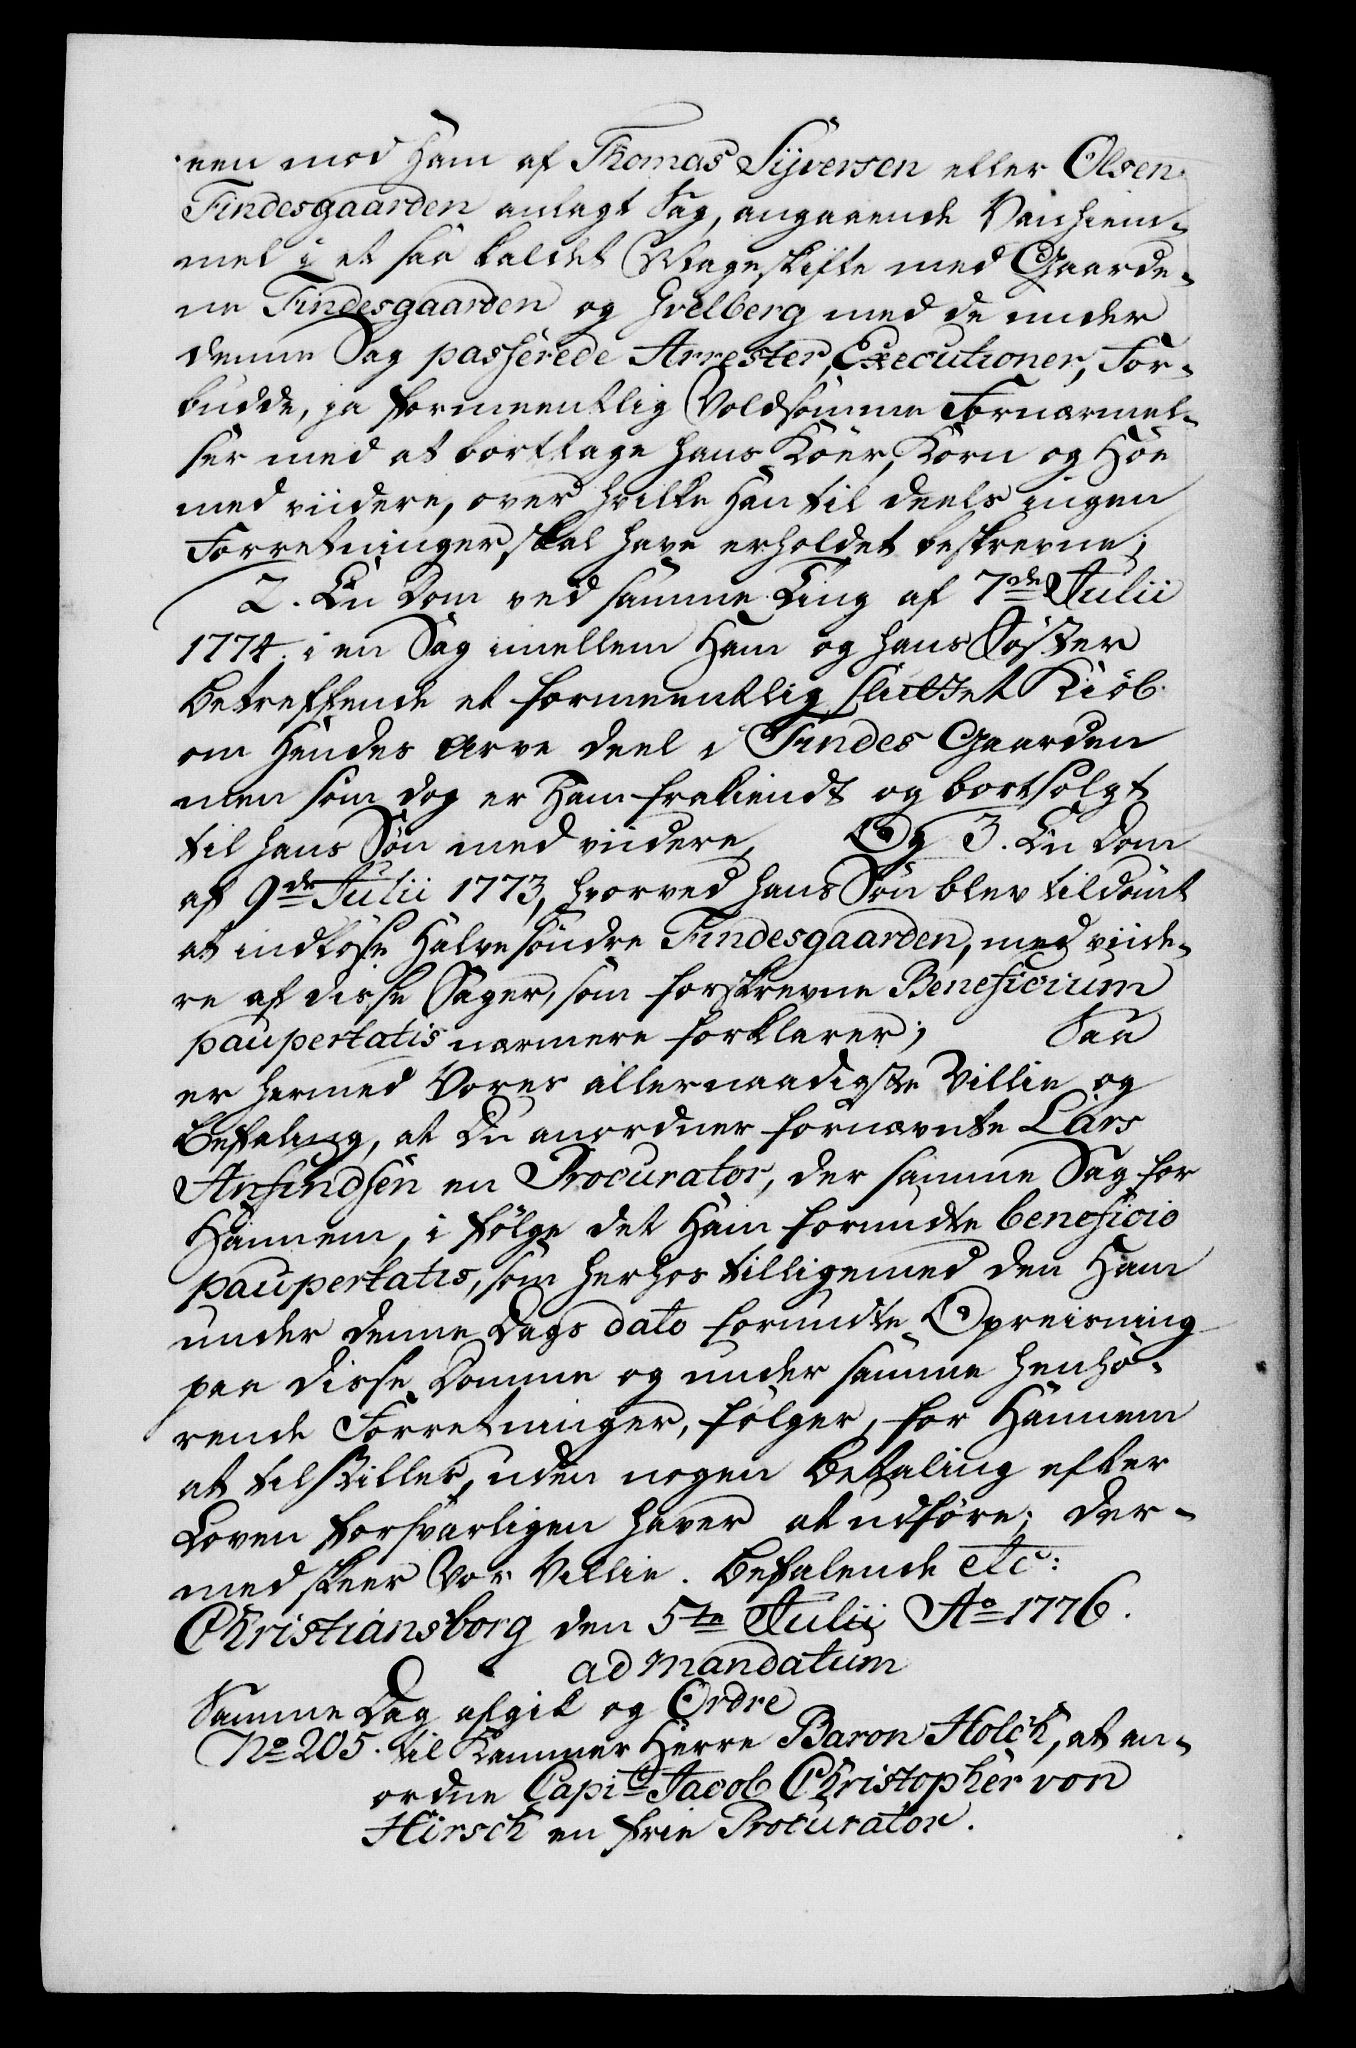 een mod Ham af Thomas Sÿversen eller Olsen
Findesgaarden anlagt Sag, angaaende Vanhiem-
mel i et saa kaldet Mageskifte med Gaarde-
ne Findesgaarden og Hvelberg med de under
denne Sag passerede Arrester, Executioner, For-
budde, ja formeentlig Voldsomme Fornærmel-
ser med at borttage hans Köer, Korn og Höe
med viidere, over hvilke Han til deels ingen
Forretninger skal have erholdet beskrevne;
2. En Dom ved samme Ting af 7de Julii
1774. i en Sag imellem Ham og hans Söster
betreffende et formeentlig sluttet Kiöb
om Hendes Arve Deel i Findes Gaarden
men som dog er Ham frakiendt og bortsolgt
til hans Sön med viidere, Og 3. En Dom
af 9de Julii 1773, hvorved hans Sön blev tildömt
at indlöse Halve söndre Findesgaarden, med viide-
re af disse Sager, som forskrevne Beneficium
paupertatis nærmere forklarer; Saa
er hermed Vores allernaadigste Villie og
Befaling, at Du anordner fornævnte Lars
Anfindsen en Procurator, der samme Sag for
Hannem, i fölge det Ham forundte beneficio
paupertatis, som herhos tilligemed den Ham
under denne Dags dato forundte Opreisning
paa disse Domme og under samme henhö-
rende Forretninger, fölger, for Hannem
at tilstilles, uden nogen Betaling efter
Loven forsvarligen haver at udföre; Der-
med skeer Vor Villie. Befalende etc:
Christiansborg den 5te Julii Ao 1776.
ad mandatum
Samme Dag afgik og Ordre
No 205. til Kammer Herre Baron Holck, at an-
ordne Capit Jacob Christopher von
Hirsch en frie Procurator.